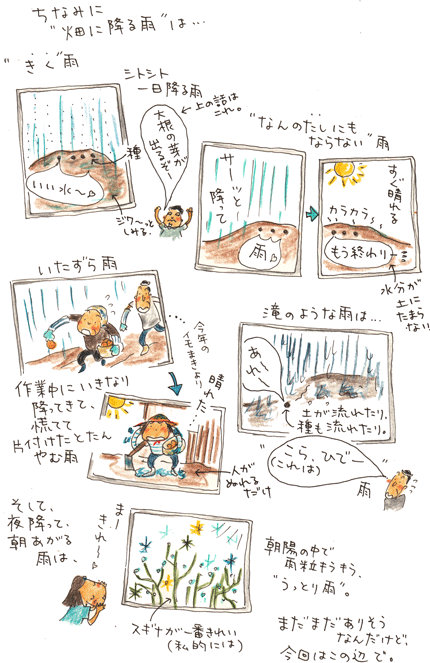 ちなみに
"畑に降る雨"は…
"きく"雨
シトシト
一日降る雨
←上の話は
これ。
大根の芽が
出るぞい
種
いい水〜♪
ジワ〜ッと
しみる。
"なんのたしにも
ならない"雨
サーッと
降って
雨♪
すぐ晴れる
カラカラ〜
もう終わりー
水分が
土に
たまら
ない!
いたずら雨
…今年の
イモまきより…
作業中にいきなり
降ってきて、
慌てて
片付けたとたん
やむ雨
晴れた
←人が
ぬれる
だけ
滝のような雨は…
あれ〜
土が流れたり、
種も流れたり。
"こら、ひでー"
(これは)
雨
そして、
夜降って、
朝あがる
雨は、
まー
きれ〜♪
スギナが一番きれい
(私的には)
朝陽の中で
雨粒もうもう、
"うっとり雨"。
まだまだありそう
なんだけど、
今回はこの辺で。